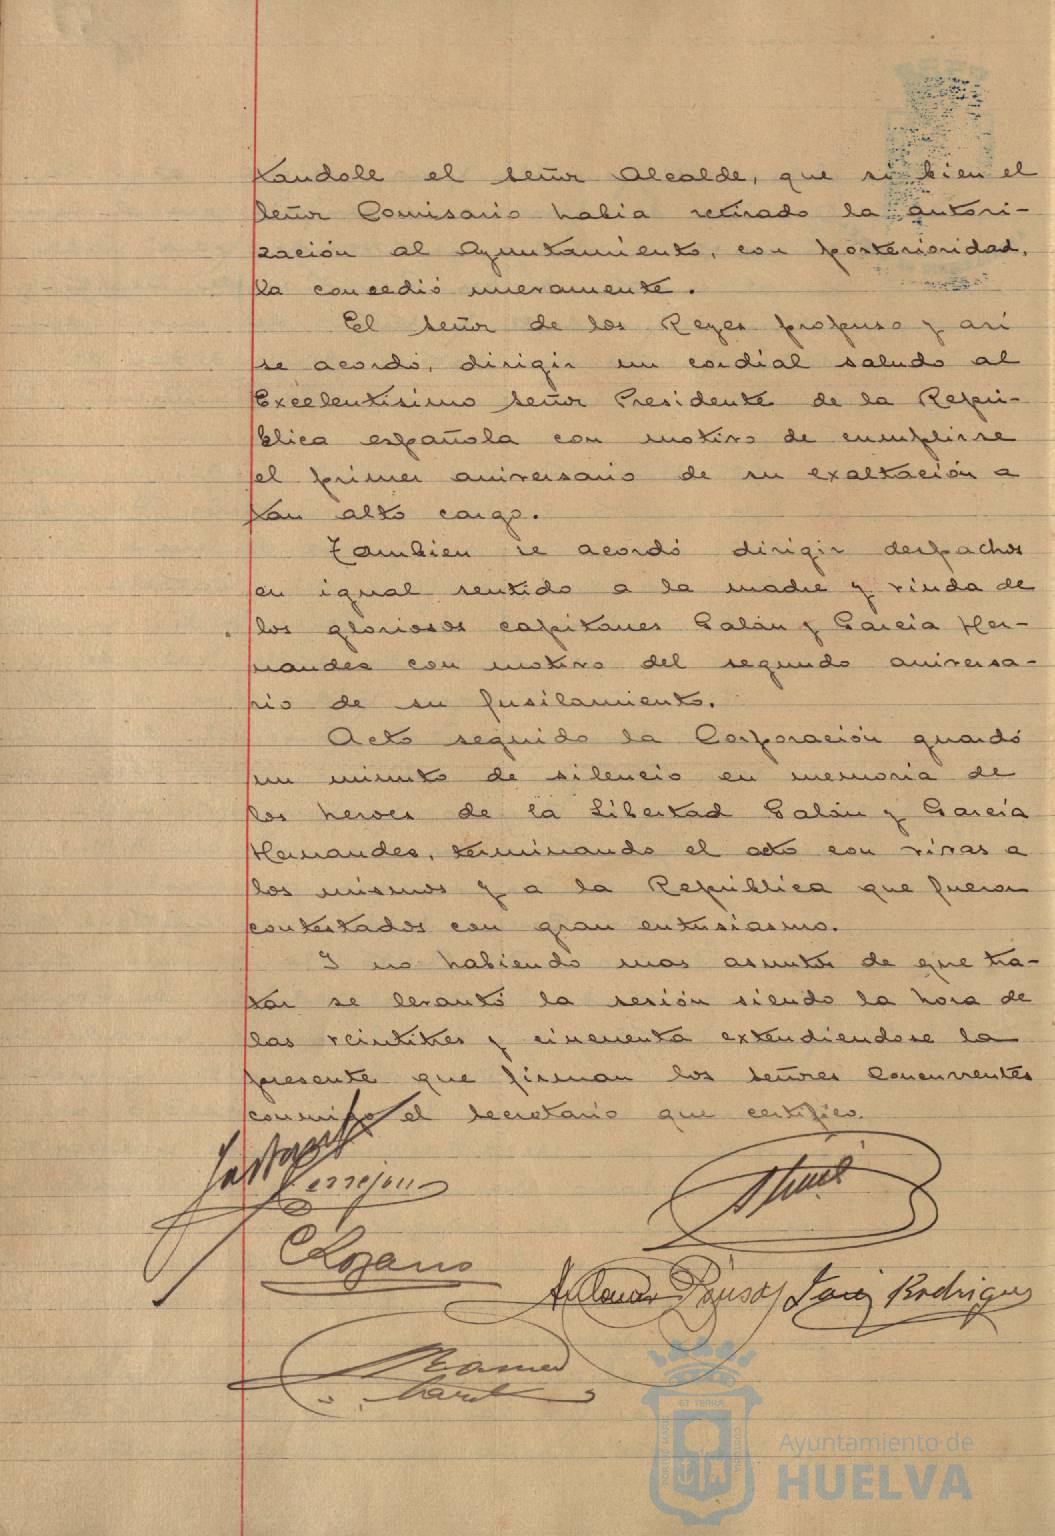 tandole el señor Alcalde, que si bien el
señor Comisario habia retirado la autori-
zación al Ayuntamiento, con posterioridad,
la concedió nueramente.
El señor de los Reyes propuso y así
se acordó, dirigir un cordial saludo al
Excelentísimo señor Presidente de la Repú-
blica española con motivo de cumplirse
el primer aniversario de su exaltación a
tan alto cargo.
Tambien se acordó dirigir despachos
en igual sentido a la madre y viuda de
los gloriosos capitanes Galán y García Her-
nandes con motivo del segundo aniversa-
rio de su fusilamiento.
Acto seguido la Corporación guardó
un minuto de silencio en memoria de
los heroes de la Libertad Galán y García
Hernandes, terminando el acto con vivas a
los mismos y a la República que fueron
contestados con gran entusiasmo.
Y no habiendo mas asuntos de que tra-
tar se levantó la sesión siendo la hora de
las veintitres y cincuenta extendiendose la
presente que firman los señores concurrentes
conmigo el secretario que certifico.
Terrejon
Lozano
Rodriguez
ET TERRÆ
Ayuntamiento de
HUELVA